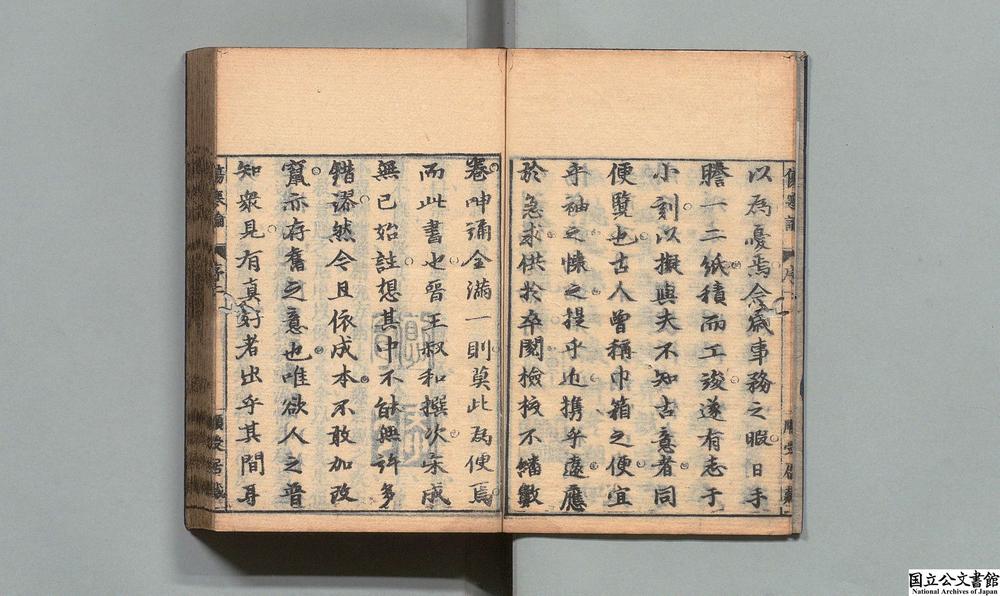 以為憂焉今歲事務之暇日手
謄一二紙積而工竣遂有志于
小刻以擬與夫不知古意者同
便覽也古人曾稱巾箱之便宜
乎袖之懷之提乎近携乎遠應
於急求供於卒閱檢挍不繙數
卷呻彌全滿一則莫此為便焉
而此書也晉王叔和撰次宋成
無已始註想其中不能無許多
錯謬然今且依成本不敢加改
竄亦存舊之意也唯欲人之普
知衆見有真好者出乎其間耳
国立公文書館
National Archives of Japan